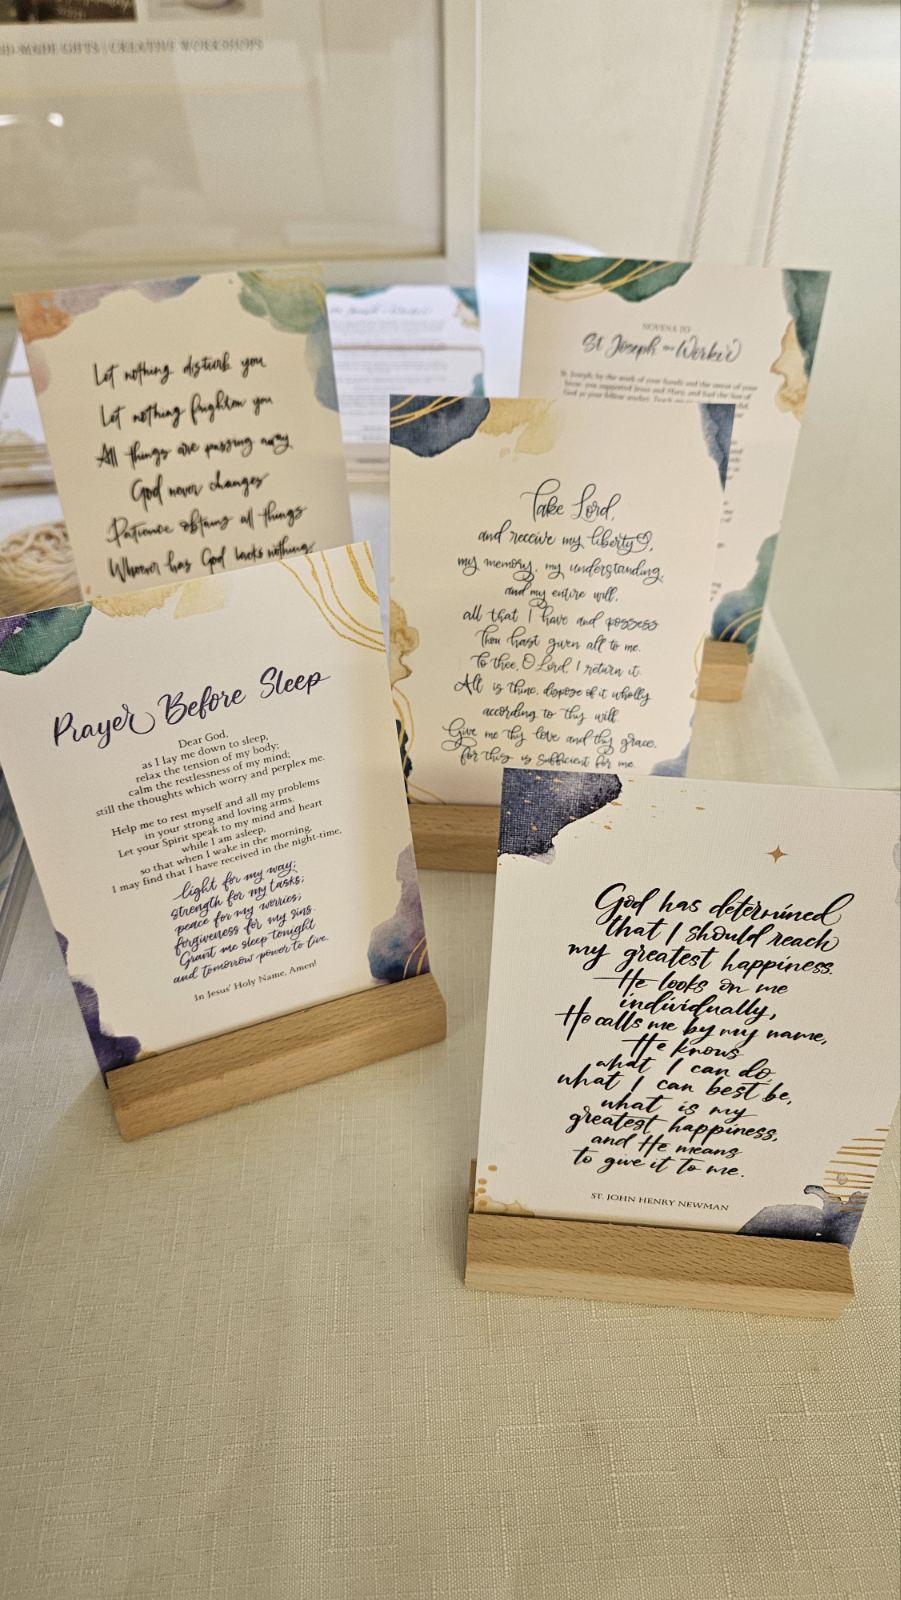 MADE GIFTS | CREATIVE WORKSHOPS
Let nothing disturb you
Let nothing frighten you
All things are passing away
God never changes
Patience obtains all things
Whoever has God lacks nothing
NOVENA TO
St Joseph the Worker
St. Joseph, by the work of your hands and the sweat of your
brow, you supported Jesus and Mary, and had the Son of
God as your fellow worker.
Take Lord,
and receive my liberty,
my memory, my understanding,
and my entire will,
all that I have and possess
Thou hast given all to me.
To thee, O Lord, I return it.
All is thine, dispose of it wholly
according to thy will.
Give me thy love and thy grace,
for this is sufficient for me.
Prayer Before Sleep
Dear God,
as I lay me down to sleep,
relax the tension of my body;
calm the restlessness of my mind;
still the thoughts which worry and perplex me.
Help me to rest myself and all my problems
in your strong and loving arms.
Let your Spirit speak to my mind and heart
while I am asleep,
so that when I wake in the morning,
I may find that I have received in the night-time,
light for my way;
strength for my tasks;
peace for my worries;
forgiveness for my sins.
Grant me sleep tonight
and tomorrow power to live.
In Jesus' Holy Name, Amen!
God has determined
that I should reach
my greatest happiness.
He looks on me
individually,
He calls me by my name,
He knows
what I can do,
what I can best be,
what is my
greatest happiness,
and He means
to give it to me.
ST. JOHN HENRY NEWMAN